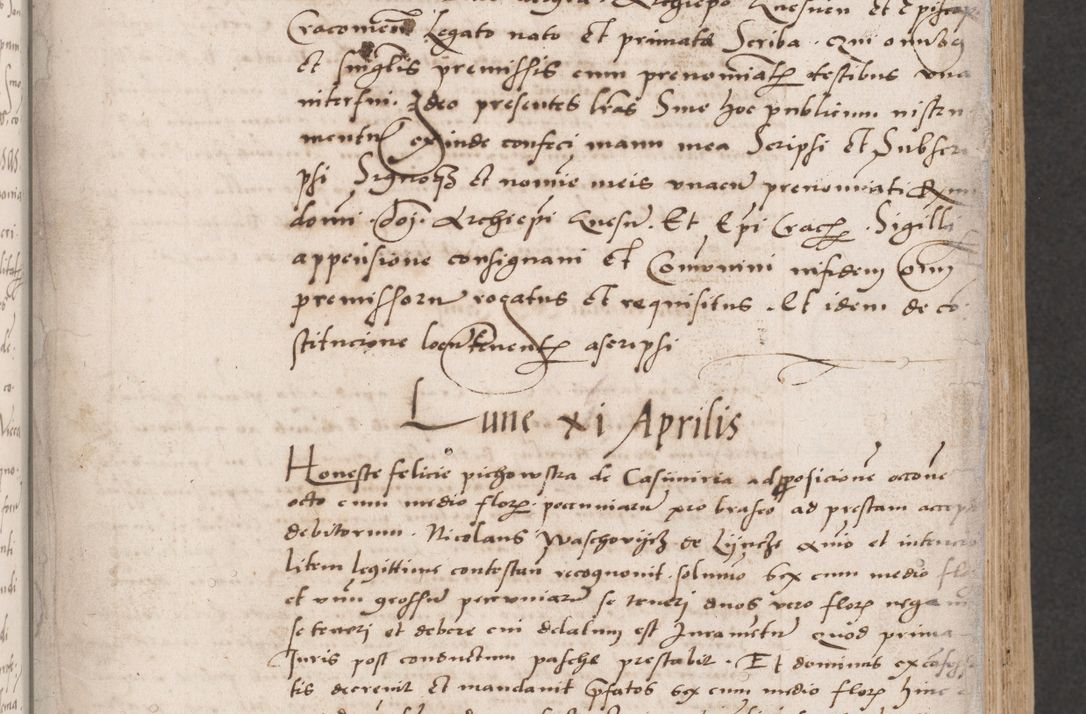 Archiepo Gnesnen et Episcop
Cracovien Legato nato Et primate Scriba. Qui omnibus
et singlis premissis cum prenominatis testibus una
interfui. Ideo presentes lras Sive hoc publicum instru
mentu exinde confeci manu mea Scripsi Et Subscri
psi Signoqz et nomie meis unacu prenominati
domi. doi. Archiepi Gnesn. Et Epi Crac. Sigilli
appensione consignavi Et Comunivi infidem omni
premissoru rogatus Et requisitus. Et idem de co
stitucione locutenent ascripsi
Lune xi Aprilis
Honeste felicie pichowska de Casimiria ad pposicione
octo cum medio flor. pecuniaru pro braseo ad prestam accep
debitorum. Nicolaus Waschovijcz de et
litem legittime contestan recognovit. solumo sex cum medio flo
et unu grossu pecuniaru se teneri duos vero flor nega
se teneri et debere cui delatum est Juramentu Quod prima
Juris post conductum pasche prestabit. Et dominus ex
tis decrevit Et mandavit pfatos sex cum medio flor hinc